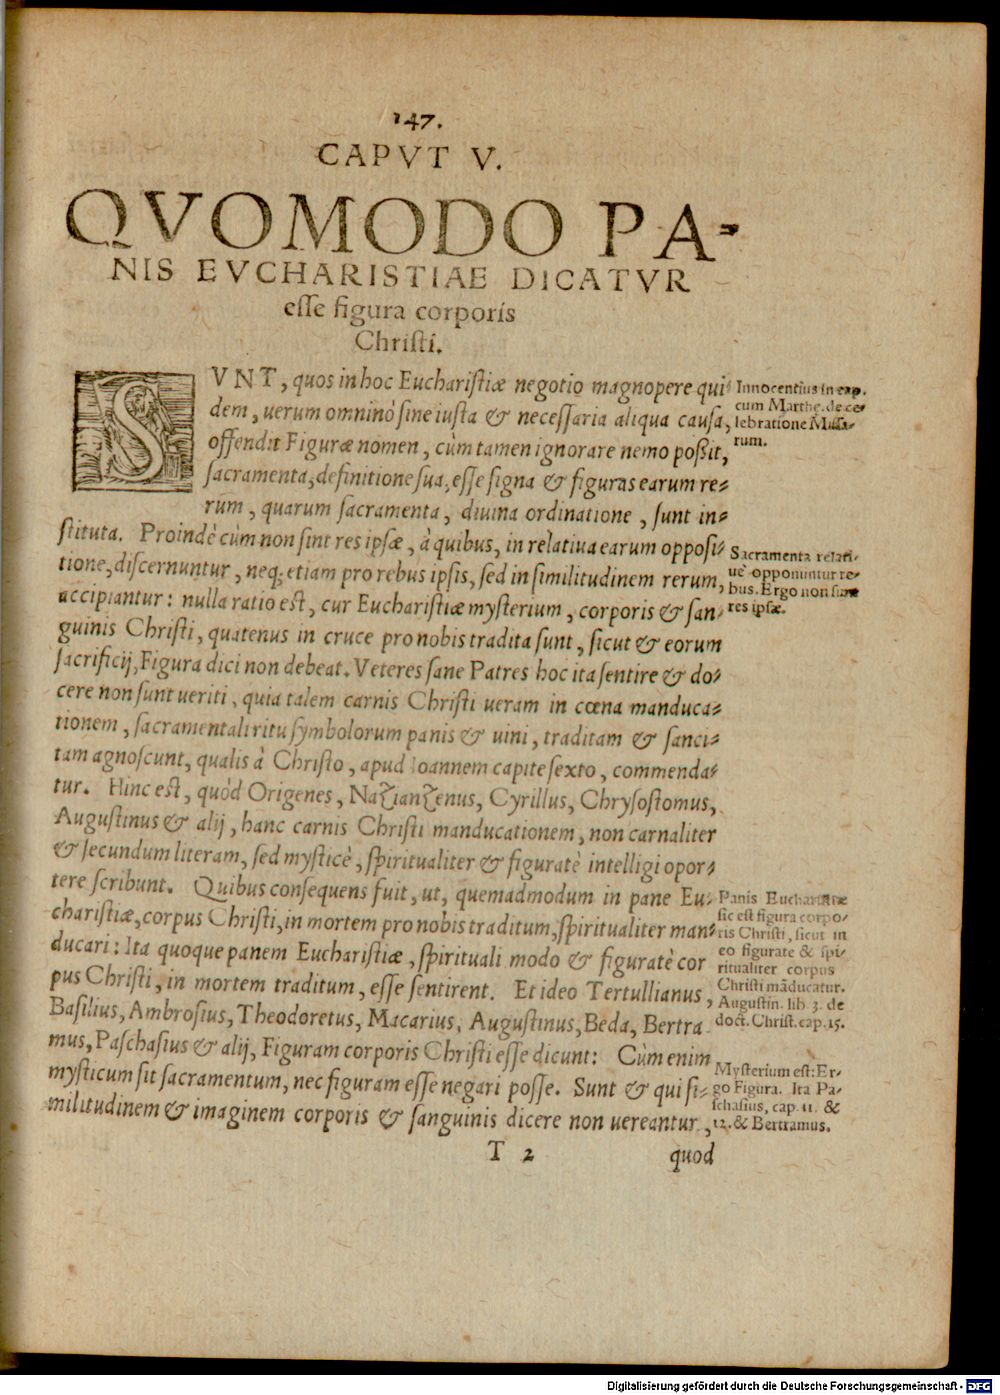 147.
CAPVT V.
QVOMODO PA-
NIS EVCHARISTIAE DICATVR
esse figura corporis
Christi.
SVNT, quos in hoc Eucharistiæ negotio magnopere qui-
dem, uerum omninò sine iusta & necessaria aliqua causa,
offendit Figuræ nomen, cùm tamen ignorare nemo poßit,
sacramenta, definitione sua, esse signa & figuras earum re-
rum, quarum sacramenta, diuina ordinatione, sunt in-
stituta. Proindè cùm non sint res ipsæ, à quibus, in relatiua earum opposi-
tione, discernuntur, neq; etiam pro rebus ipsis, sed in similitudinem rerum,
accipiantur: nulla ratio est, cur Eucharistiæ mysterium, corporis & san-
guinis Christi, quatenus in cruce pro nobis tradita sunt, sicut & eorum
sacrificij, Figura dici non debeat. Veteres sane Patres hoc ita sentire & do-
cere non sunt ueriti, quia talem carnis Christi ueram in cœna manduca-
tionem, sacramentali ritu symbolorum panis & uini, traditam & sanci-
tam agnoscunt, qualis à Christo, apud Ioannem capite sexto, commenda-
tur. Hinc est, quòd Origenes, Nazianzenus, Cyrillus, Chrysostomus,
Augustinus & alij, hanc carnis Christi manducationem, non carnaliter
& secundum literam, sed mysticè, spiritualiter & figuratè intelligi opor-
tere scribunt. Quibus consequens fuit, ut, quemadmodum in pane Eu-
charistiæ, corpus Christi, in mortem pro nobis traditum, spiritualiter man-
ducari: Ita quoque panem Eucharistiæ, spirituali modo & figuratè cor
pus Christi, in mortem traditum, esse sentirent. Et ideo Tertullianus,
Basilius, Ambrosius, Theodoretus, Macarius, Augustinus, Beda, Bertra
mus, Paschasius & alij, Figuram corporis Christi esse dicunt: Cùm enim
mysticum sit sacramentum, nec figuram esse negari posse. Sunt & qui si-
militudinem & imaginem corporis & sanguinis dicere non uereantur,
T 2
quod
Innocentius in exp.
cum Marthe. de ce-
lebratione Missa-
rum.
Sacramenta relati-
uè opponuntur re-
bus. Ergo non sunt
res ipsæ.
Panis Eucharistiæ
sic est figura corpo-
ris Christi, sicut in
eo figurate & spi-
ritualiter corpus
Christi māducatur.
Augustin. lib 3. de
doct. Christ. cap. 15.
Mysterium est: Er-
go Figura. Ita Pa-
schasius, cap. 11. &
12. & Bertramus.
Digitalisierung gefördert durch die Deutsche Forschungsgemeinschaft - DFG